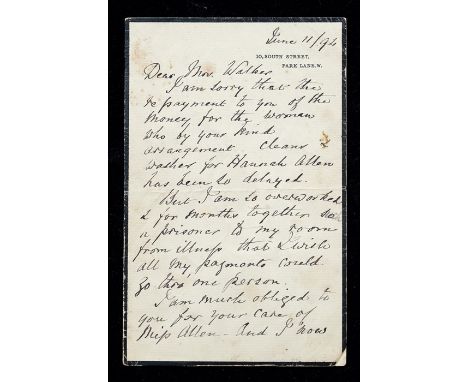 June 11/92
10, SOUTH STREET,
PARK LANE. W.
Dear Mrs. Walker
I am sorry that the
re payment to you of the
money for the woman
who by your kind
arrangement cleans
washes for Hannah Allen
has been so delayed.
But I am so overworked
& for months together
a prisoner to my room
from illness that I wish
all my payments could
go thro' one person.
I am much obliged to
you for your care of
Miss Allen. And I